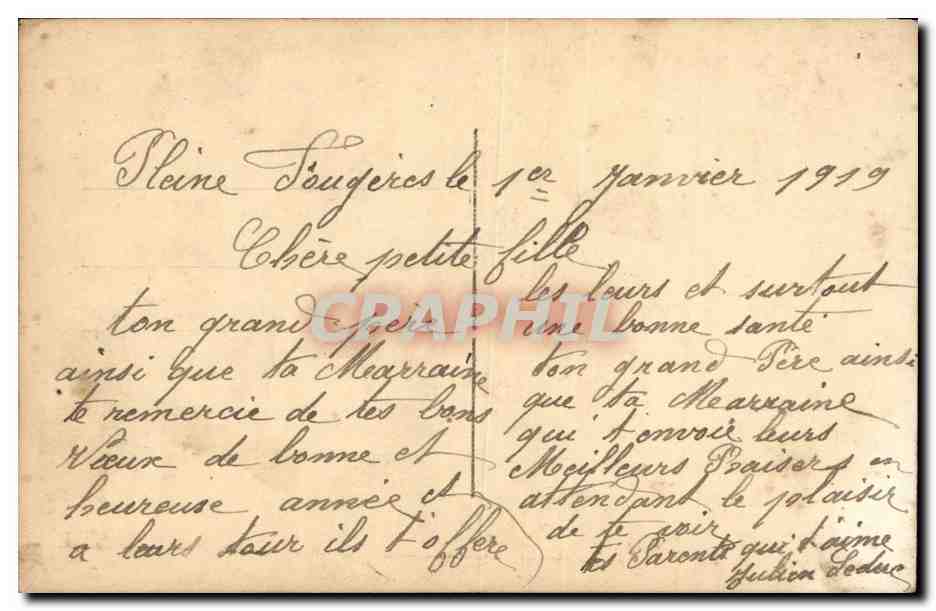 Pleine Fougères le 1er Janvier 1919
Chère petite fille
ton grand père
ainsi que ta Marraine
te remercie de tes bons
Vœux de bonne et
heureuse année et
a leurs tour ils t'offre
les leurs et surtout
une bonne santé
ton grand Père ainsi
que ta Marraine
qui t'envoie leurs
Meilleurs Baisers en
attendant le plaisir
de te voir
tes Parents qui t'aime
Julien Leduc
CRAPHIL